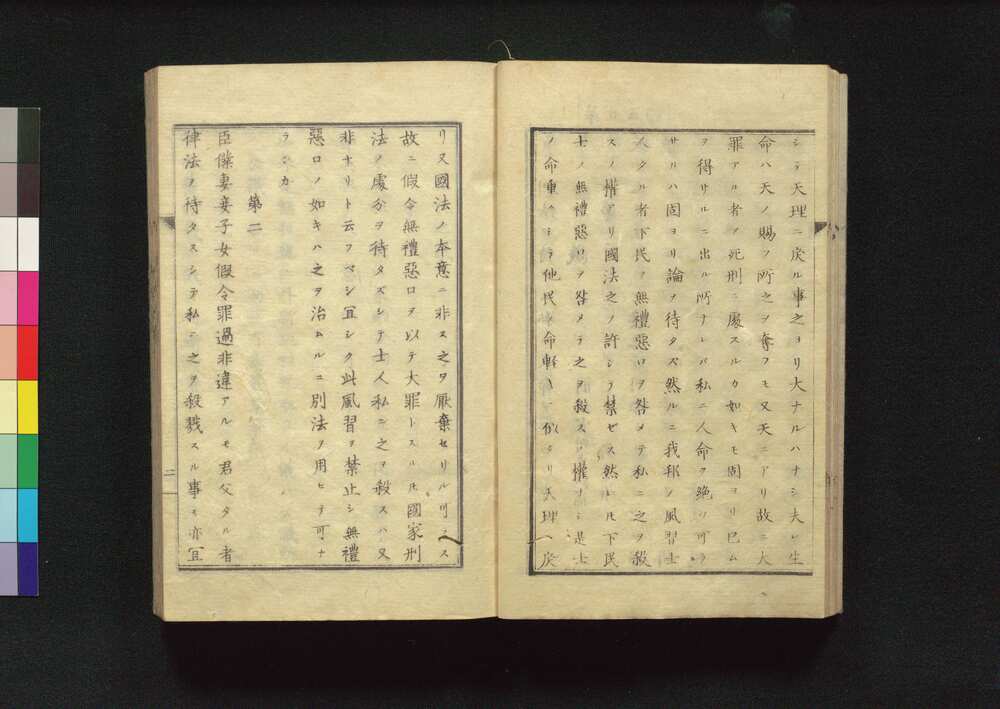 シテ天理ニ戻ル事之ヨリ大ナルハナシ夫レ生
命ハ天ノ賜フ所之ヲ奪フモ又天ニアリ故ニ大
罪アル者ノ死刑ニ處スルカ如キモ固ヨリ巳ム
ヲ得サルニ出ル所ナレバ私ニ人命ヲ絶ツ可ラ
サルハ固ヨリ論ヲ待タズ然ルニ我邦ノ風習士
人タル者下民ノ無禮惡口ヲ咎メテ私ニ之ヲ殺
スノ權アリ國法之ノ許シテ禁ゼス然レ𪜈下民
士ノ無禮惡口ヲ咎メテ之ヲ殺スノ權ナシ是士
ノ命重クシテ他民ノ命輕キニ似タリ天理ニ戻
リ又國法ノ本意ニ非ス之ヲ厭棄セサル可ラス
故ニ假令無禮惡口ヲ以テ大罪トスル𪜈國家刑
法ノ處分ヲ待タズシテ士人私ニ之ヲ殺スハ又
非ナリト云フベシ宜シク此風習ヲ禁止シ無禮
惡口ノ如キハ之ヲ治ムルニ別法ヲ用ヒテ可ナ
ランカ
第二
臣僕妻妾子女假令罪過非違アルモ君父タル者
律法ノ待タスシテ私ニ之ヲ殺戮スル事モ亦宜
二